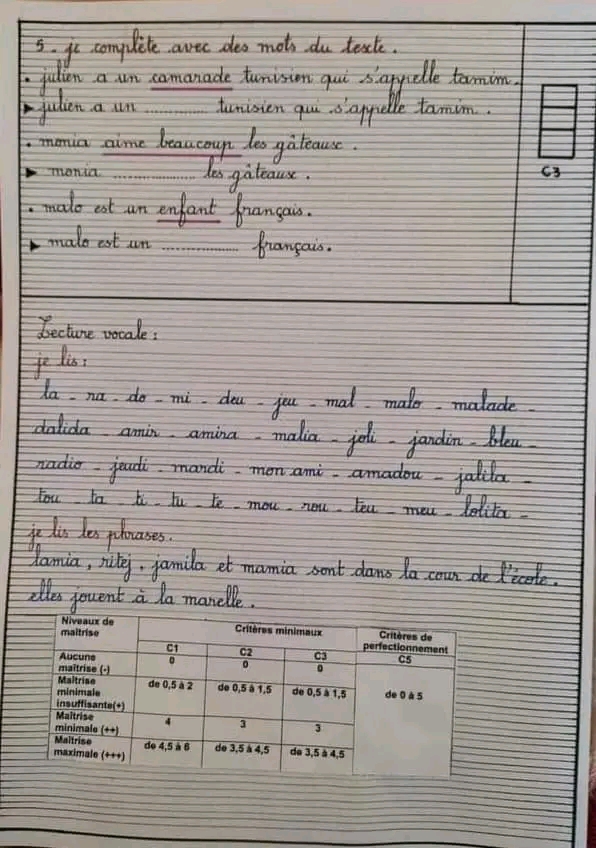 5. je complète avec des mots du texte.
. julien a un camarade tunisien qui s'appelle tamim.
➤ julien a un ............ tunisien qui s'appelle tamim.
. monia aime beaucoup les gâteaux.
➤ monia ............... les gâteaux.
. malo est un enfant français.
➤ malo est un .............. français.
C3
Lecture vocale :
je lis :
la - ra - do - mi - deu - jeu - mal - malo - malade -
dalida - amir - amira - malia - joli - jardin - bleu -
radio - jeudi - mardi - mon ami - amadou - jalila -
tou - ta - ti - tu - te - mou - rou - teu - meu - lolita -
je lis les phrases.
lamia, ritej, jamila et mamia sont dans la cour de l'école.
elles jouent à la marelle.
Niveaux de maîtrise Critères minimaux Critères de perfectionnement
C1 C2 C3 C5
Aucune maîtrise (-) 0 0 0
Maîtrise minimale insuffisante(+) de 0,5 à 2 de 0,5 à 1,5 de 0,5 à 1,5 de 0 à 5
Maîtrise minimale (++) 4 3 3
Maîtrise maximale (+++) de 4,5 à 6 de 3,5 à 4,5 de 3,5 à 4,5